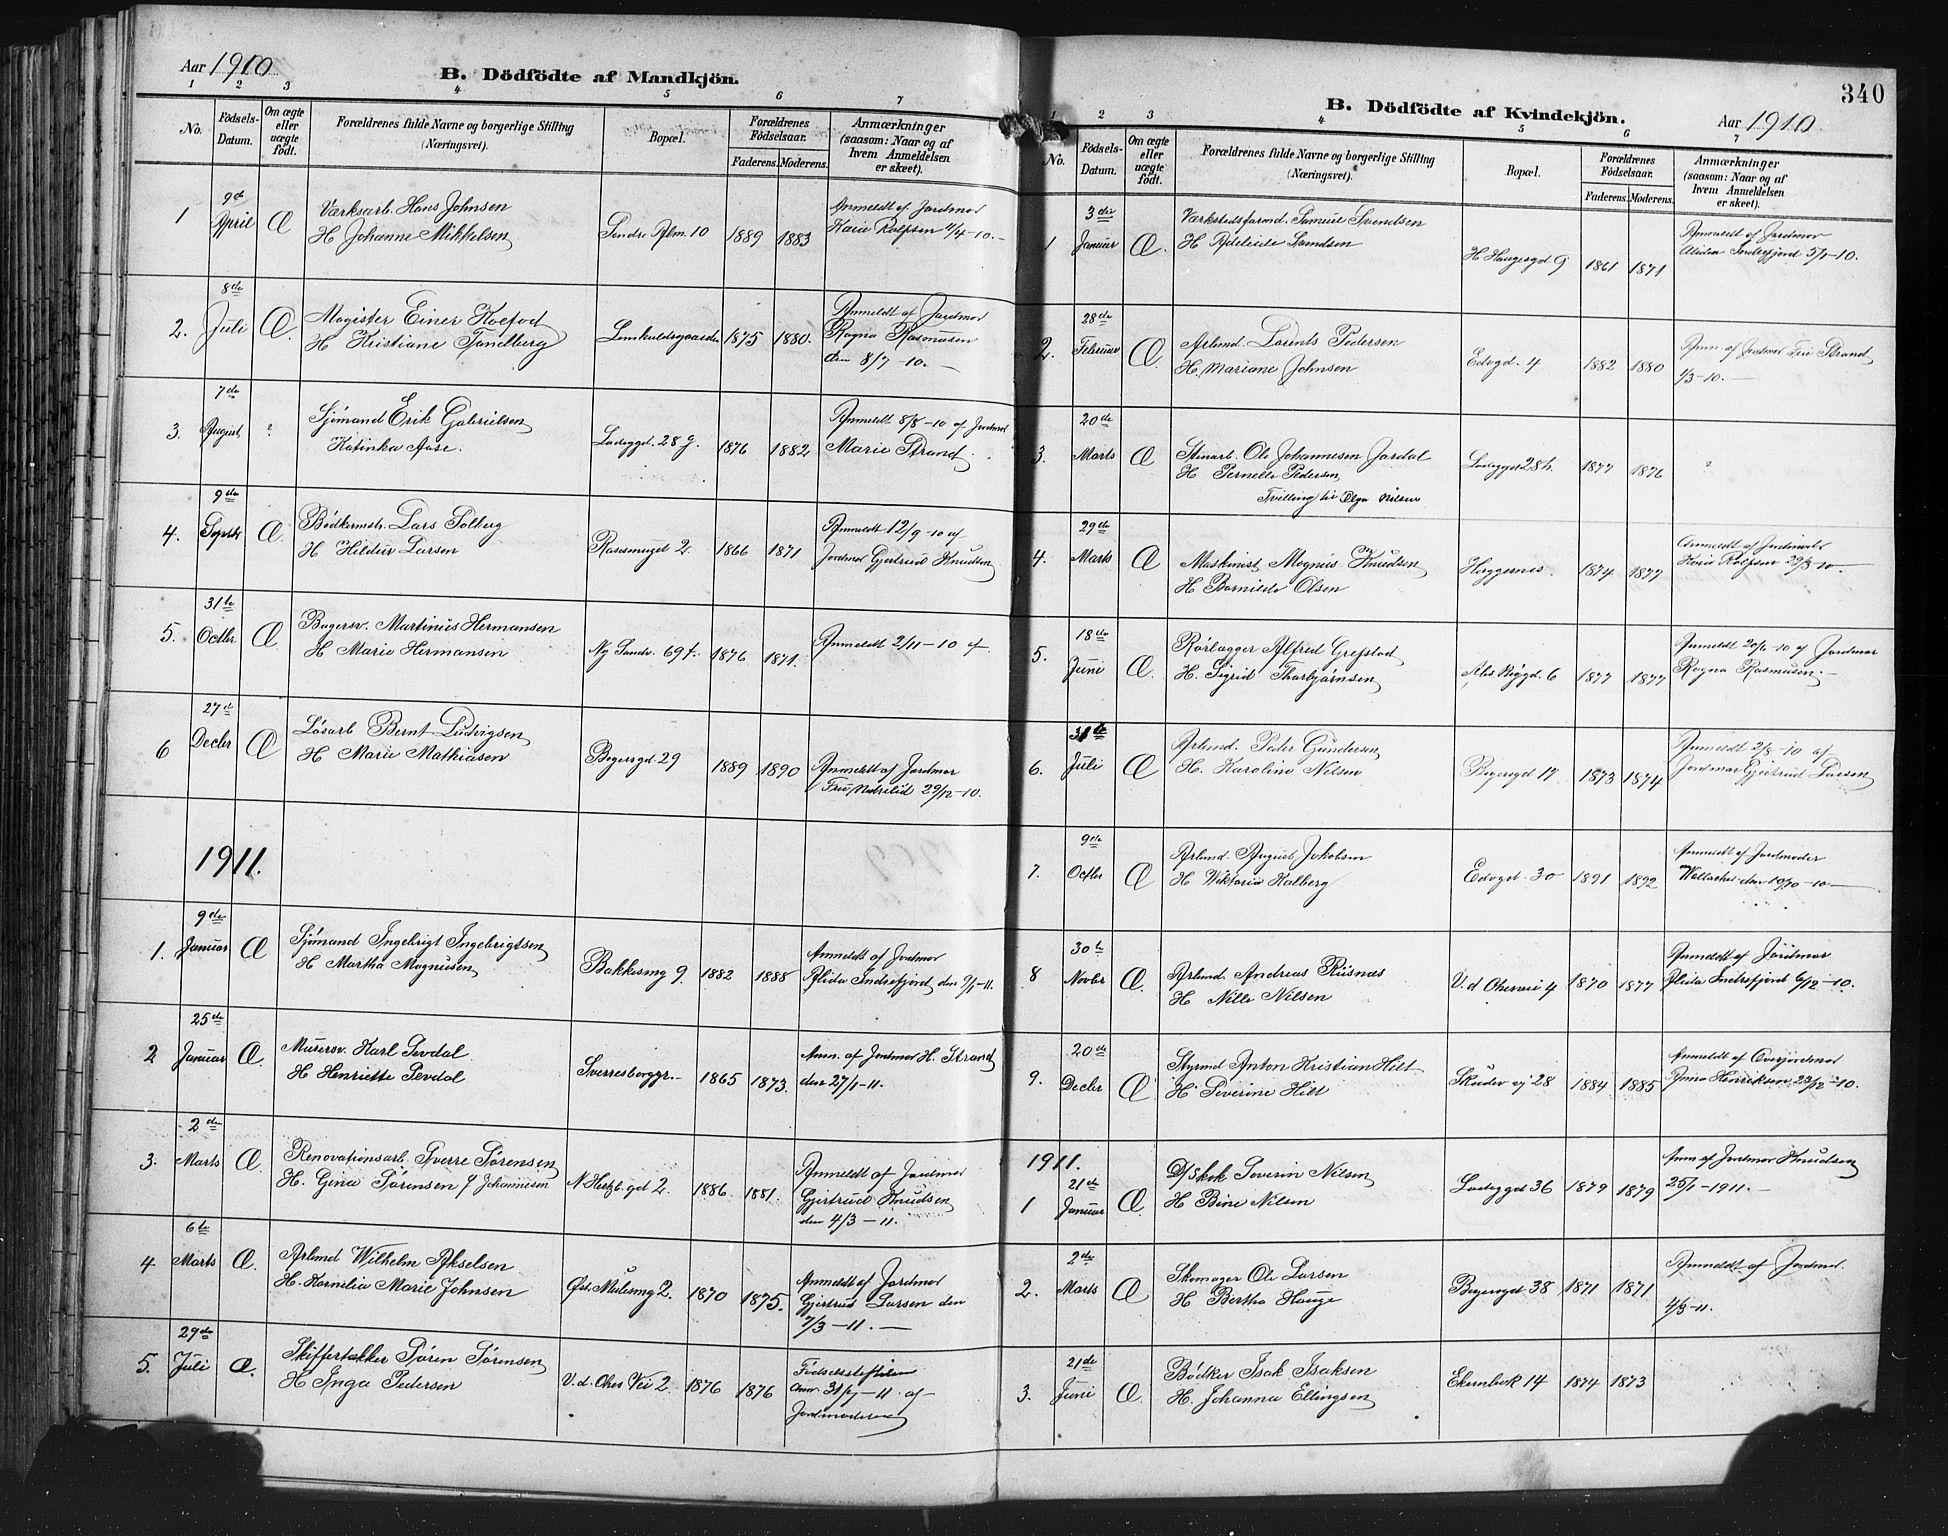 Aar 1910
B. Dödfödte af Mandkjön.
1 2 3 4 5 6 7
No.
Födsels-Datum.
Om ægte eller uægte födt.
Forældrenes fulde Navne og borgerlige Stilling
(Næringsvei).
Bopæl.
Forældrenes Födselsaar.
Faderens. Moderens.
Anmærkninger
(saasom: Naar og af
hvem Anmeldelsen
er skeet).
1 9de April Æ
Værksarb. Hans Johnsen
H Johanne Mikkelsen
Søndre Alm. 10 1889 1883
Anmeldt af Jordmor
Karie Rolfsen 11/4-10.-
2. 8de Juli Æ
Magister Einer Koefod
H Kristiane Fandberg
1875 1880.
Anmeldt af Jordmor
Ragna Rasmussen
den 8/7-10. -
3. 7de August ?
Sjømand Erik Gabrielsen
Katinka Aase.
Ladegd. 28 g. 1876 1882
Anmeldt 8/8-10 af Jordmor
Marie Strand.
4. 9de Septbr Æ
Bødkermstr. Lars Solberg
H Hildur Larsen
Rosesmuget 2. 1866 1871
Anmeldt 12/9-10 af
Jordmor Gjertrud Knudsen
5. 31te Octbr Æ
Bagersv. Martinius Hermansen
H Marie Hermansen
Ny Sandv. 69 f. 1876 1871.
Anmeldt 2/11-10 af
6 27de Decbr Æ
Løsarb Bernt Ludvigsen
H Marie Mathiasen
Bøgersgd 29 1889 1890
Anmeldt af Jordmor
Fru Nedrelid 29/12-10.
1911.
1. 9de Januar Æ
Sjømand Ingebrigt Ingebrigtsen
H Martha Magnusen
Bakkesmg 9. 1882 1888
Anmeldt af Jordmor
Alida Indrefjord den 9/1-11.
2 25de Januar Æ
Murersv. Karl Sevdal
H Henriette Sevdal
Sverresborggr.- 1865 1873.
Anm. af Jordmor H. Strand
den 27/1-11.
3. 2den Marts Æ
Renovationsarb. Sverre Sørensen
H. Gina Sørensen f Johannesen
N. Hertzb.gd 2. 1886 1881.
Anmeldt af Jordmor
Gjertrud Knudsen
den 4/3-11.
4 6te Marts Æ
Arbmd Wilhelm Akselsen
H. Kornelia Marie Johnsen
Øst. Mulesmg 2. 1870 1875.
Anmeldt af Jordmor
Gjertrud Larsen den
7/3-11. -
5. 29de Juli Æ.
Skiffertækker Sören Sørensen
H Inga Pedersen
V. d. Ohes Vei 2. 1876 1876
Anm. 31/7-11 af
Jordmoderen
340
B. Dödfödte af Kvindekjön.
Aar 1910.
1 2 3 4 5 6 7
No.
Födsels-Datum.
Om ægte eller uægte födt.
Forældrenes fulde Navne og borgerlige Stilling
(Næringsvei).
Bopæl.
Forældrenes Födselsaar.
Faderens. Moderens.
Anmærkninger
(saasom: Naar og af
hvem Anmeldelsen
er skeet).
1 3die Januar Æ
Værkstedsformd. Samuel Svendsen
H Adeleide Svendsen
H. Haugesgd 9 1861 1871
Anmeldt af Jordmor
Alida Indrefjord 5/1-10.
2. 28de Februar Æ
Arbmd. Lorents Pedersen
H. Mariane Johnsen
Edvgd. 4 1882 1880
Anm. af Jordmor Fru Strand
1/3-10.-
3. 20de Marts Æ
Stenarb. Ole Johannesen Jordal
H Pernelle Pedersen
Tvilling til Olga Nilsen
Ladegd 28 h. 1877 1876 ?
4. 29de Marts Æ
Maskinist Magnus Knudsen
H Bornilde Olsen
Heggernes. 1874 1877
Anmeldt af Jordmoder
Karie Rolfsen 29/3-10.-
5. 18de Juni Æ
Rørlægger Alfred Grefstad
H. Sigrid Thorbjørnsen
6 1877 1877
Anmeldt 20/6-10 af Jordmor
Ragna Rasmusen.-
6. 31te Juli Æ
Arbmd. Peder Gundersen
H. Karoline Nilsen
Bøgersgd 17 1873 1874
Anmeldt 2/8-10 af
Jordmor Gjertrud Larsen
7. 9de Octbr Æ
Arbmd. August Jakobsen
H Viktoria Kalberg
Edvgd. 30 1891 1892
Anmeldt af Jordmoder
den 10/10-10-
8 30te Novbr Æ.
Arbmd. Andreas Risnæs
H Nille Nilsen
V. d Ohesvei 4 1870 1877
Anmeldt af Jordmor
Alida Indrefjord 6/12-10.
9. 20de Decbr Æ
Styrmd Anton Kristian Hilt
H Severine Hilt
Skudev vj 28 1884 1885
Anmeldt af Overjordmor
Anna Henriksen 23/12-10.
1911.
1 21de Januar Æ.
D/Skok Severin Nilsen
H Bine Nilsen
Ladegd 36 1879 1879
Anm. af Jordmor Knudsen
25/1-1911.-
2. 2den Marts Æ
Skomager Ole Larsen
H Bertha Hauge
Bøgersgd 38 1871 1871
Anmeldt af Jordmor
4/3-11.
3. 21de Juni Æ.
Bødker Isak Isaksen
H. Johanna Ellingsen
Ekernbok 14 1874 1873